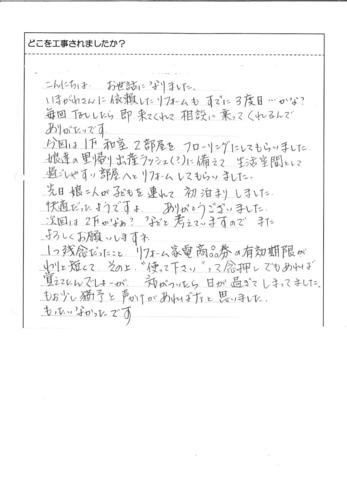 どこを工事されましたか?
こんにちは。 お世話になりました。
いまがわさんに依頼したリフォームも すでに3度目…かな?
毎回 TELしたら 即 来てくれて 相談に 乗ってくれるんで
ありがたいです。
今回は 1F 和室 2部屋を フローリングにしてもらいました。
娘達の里帰り出産ラッシュ(?)に備えて 生活空間として
過ごしやすい部屋へとリフォームしてもらいました。
先日 娘二人が子どもを連れて 初泊まりしました。
快適だったようですよ。 ありがとうございました。
次回は 2Fかなぁ? などと 考えていますので また
よろしくお願いしますネ
1つ残念だったこと リフォーム家電商品券の有効期限が
わりと短くて、その上、“使って下さい”って念押しでもあれば
覚えてたんでしょーが、 気がついたら 日が過ぎてしまってました。
もお少し猶予と 声かけがあればナと思いました。
もったいなかったです